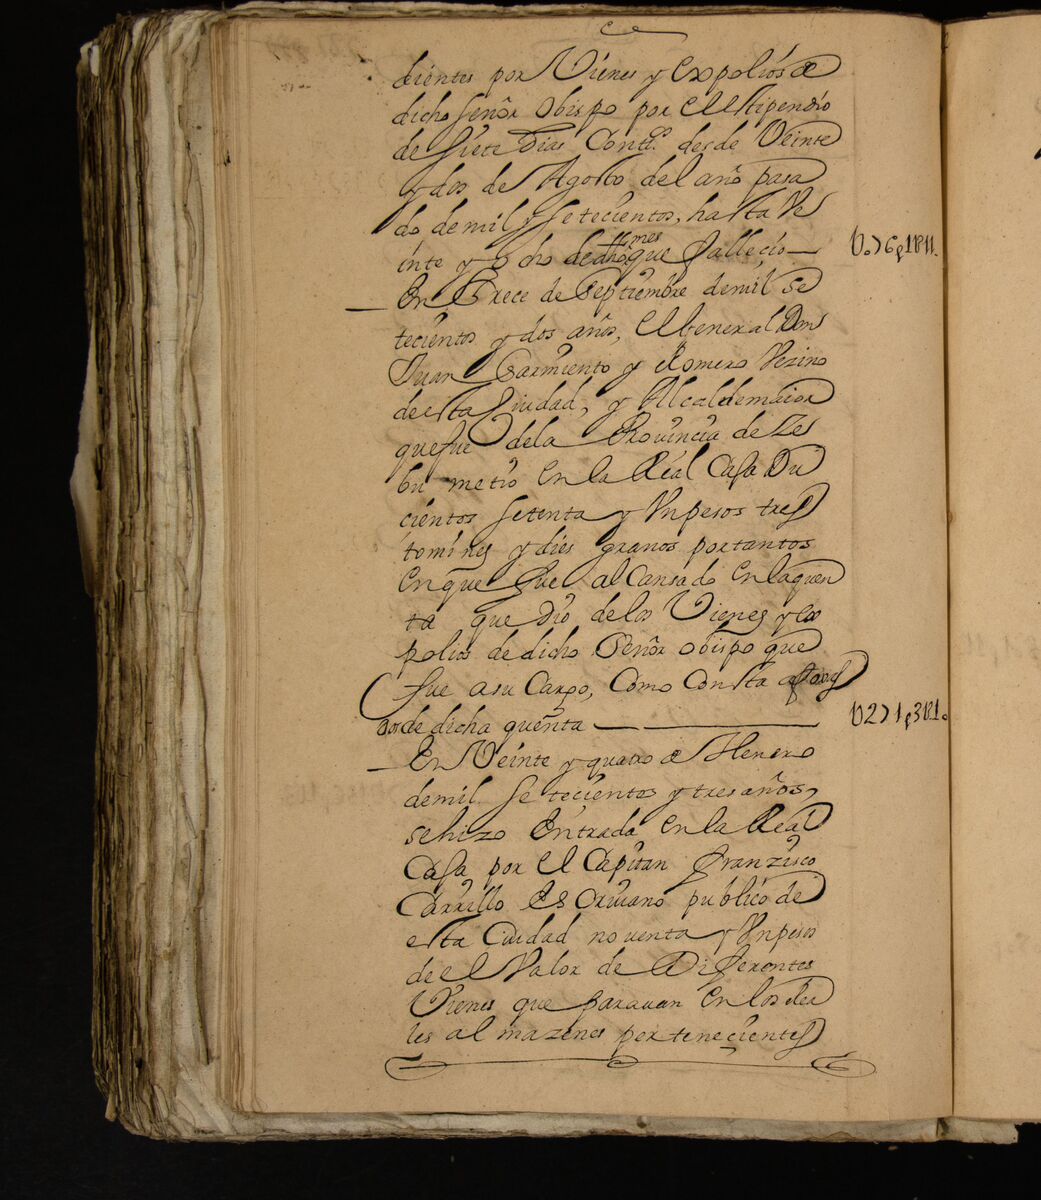 dientes por Vienes y Expolios de
dicho señor obispo por el Estipendio
de siete Dias Cont.s desde Veinte
y dos de Agosto del año pasa
do de mil y setecientos, hasta Ve
inte y ocho de dho mes que fallecio—
En Trece de Septiembre de mil se
tecientos y dos años, el General Don
Juan Sarmiento y Romero Vezino
de esta Ciudad, y Alcalde maior
que fue de la Provincia de Ze
bu metio En la Real Casa Du
cientos setenta y Un pesos tres
tomines y dies granos por tantos
En que fue alcansado En la quen
ta que dio de los Vienes y ex
polios de dicho Señor obispo que
fue a su Cargo, Como Consta
de dicha quenta
En Veinte y quatro de Henero
de mil setecientos y tres años,
se hizo Entrada En la Real
Casa por el Capitan Franzisco
Carrillo Escrivano publico de
esta Ciudad noventa y Un pesos
de el Valor de Diferentes
Vienes que paravan En los Rea
les almazenes pertenecientes